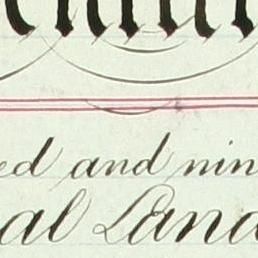 ed and nin
al Land